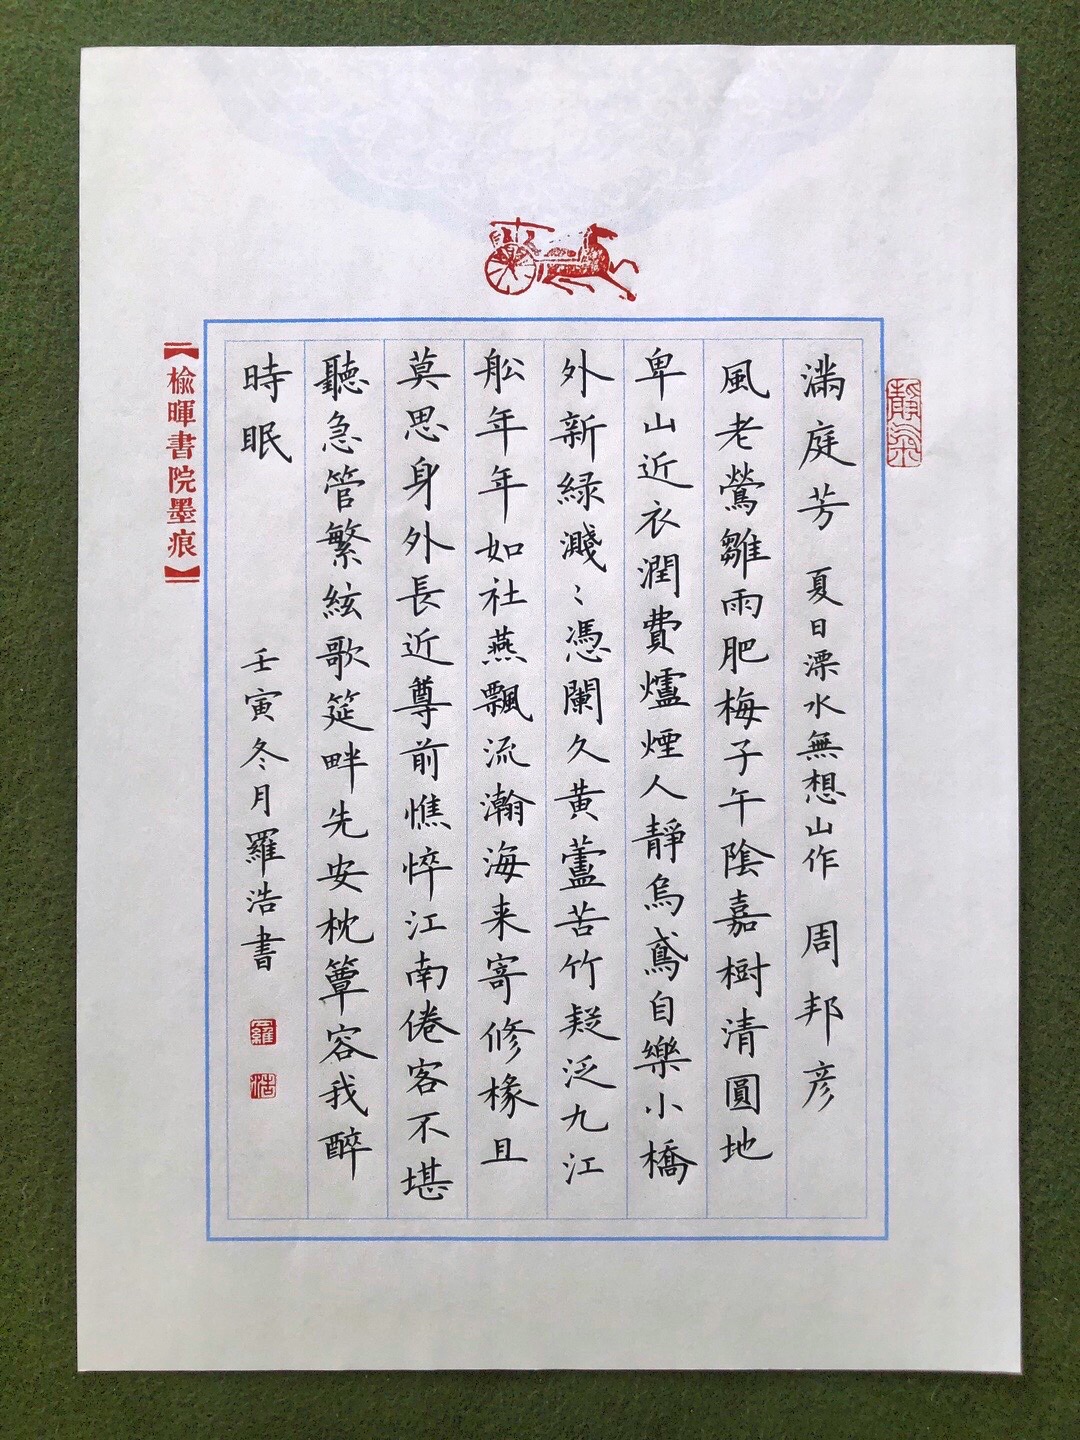 滿庭芳 夏日溧水無想山作 周邦彦
風老鶯雛雨肥梅子午陰嘉樹清圓地
卑山近衣潤費爐煙人靜烏鳶自樂小橋
外新緑濺〻憑闌久黄蘆苦竹疑泛九江
舩年年如社燕飄流瀚海来寄修椽且
莫思身外長近尊前憔悴江南倦客不堪
聽急管繁絃歌筵畔先安枕簟容我醉
時眠
壬寅冬月羅浩書
羅
浩
【榆暉書院墨痕】